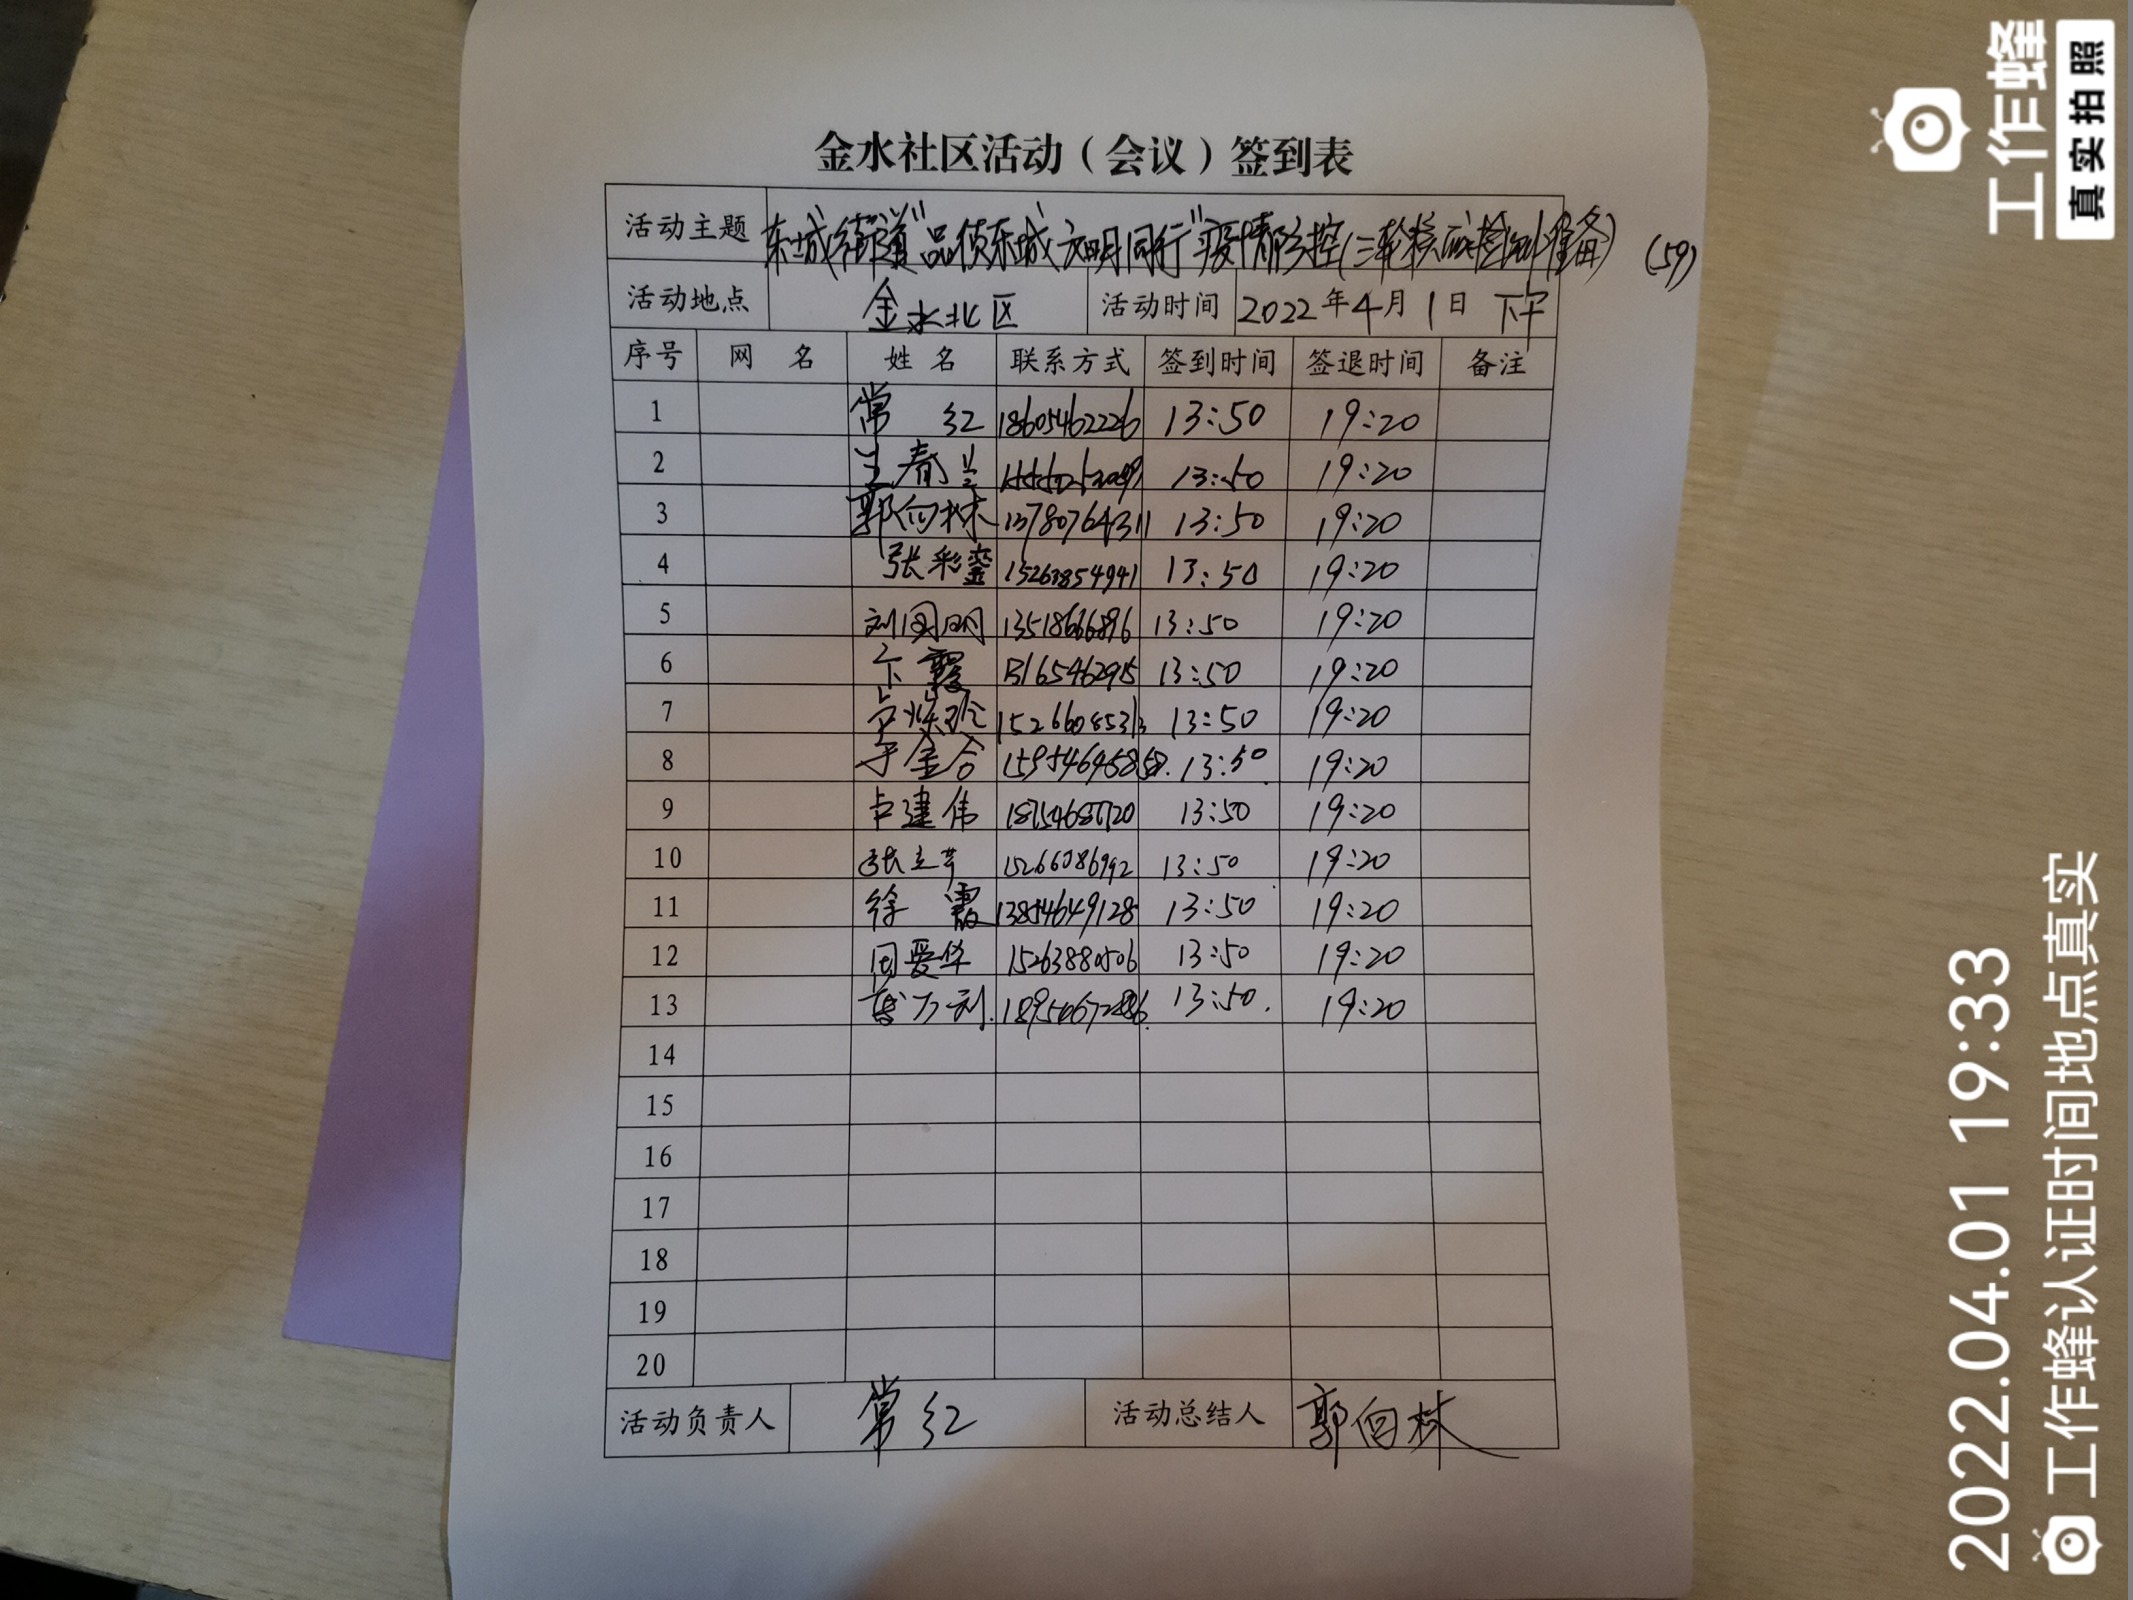 金水社区活动（会议）签到表
活动主题 东城街道"品质东城 文明同行"疫情防控(三轮核酸检测准备) (59)
活动地点 金水北区 活动时间 2022年4月1日 下午
序号 网 名 姓 名 联系方式 签到时间 签退时间 备注
1 常 红 18605462226 13:50 19:20
2 王春兰 13:50 19:20
3 郭向林 13780764311 13:50 19:20
4 张彩銮 15263854941 13:50 19:20
5 刘国明 13518666896 13:50 19:20
6 卞霞 13165462915 13:50 19:20
7 13:50 19:20
8 于金合 13:50 19:20
9 卢建伟 13:50 19:20
10 张立芹 15266086992 13:50 19:20
11 徐 霞 13854649128 13:50 19:20
12 周爱华 15263880506 13:50 19:20
13 13:50. 19:20
14
15
16
17
18
19
20
活动负责人 常红 活动总结人 郭向林
工作蜂
真实拍照
2022.04.01 19:33
工作蜂认证时间地点真实